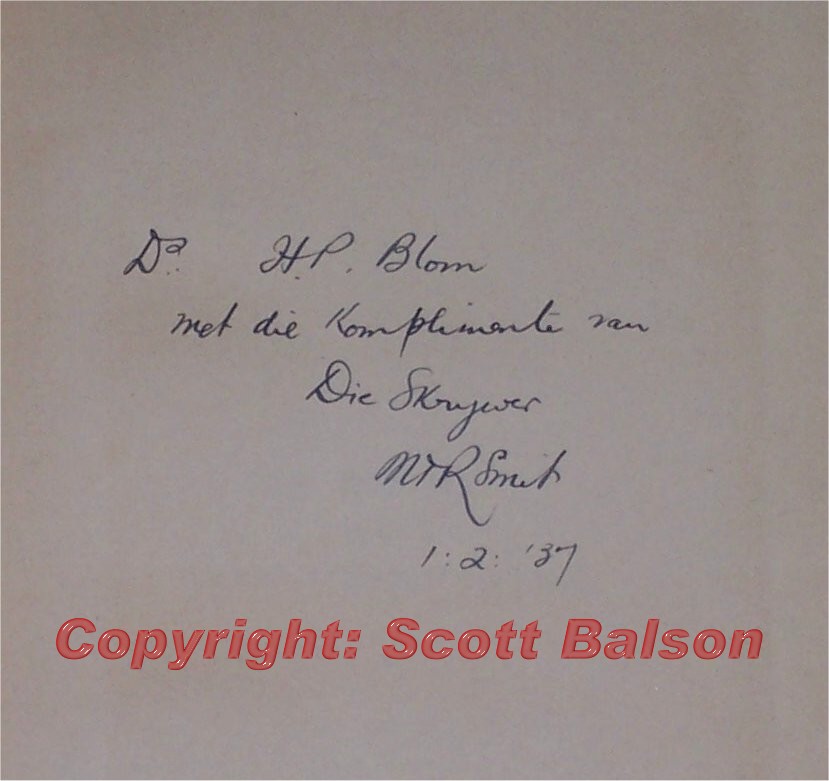 Dr. H.P. Blom
met die Komplimente van
Die Skrywer
M T R Smit
1:2: '37
Copyright: Scott Balson